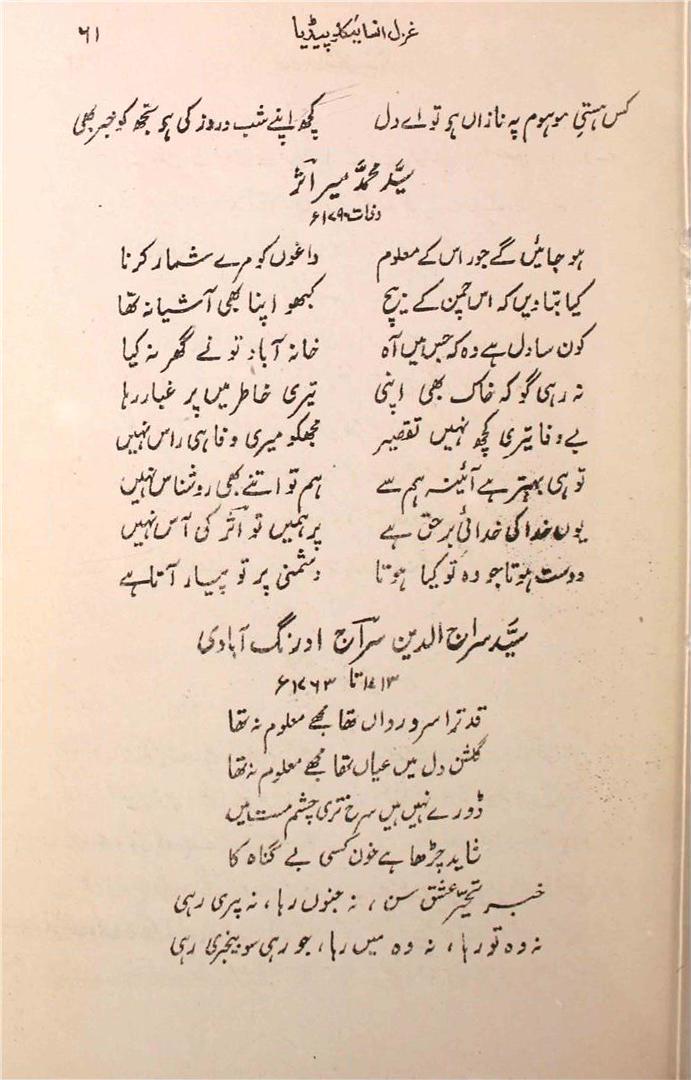 غزل انسائیکلوپیڈیا ۶۱
کس ہستیِ موہوم پہ نازاں ہو تو اے دل کچھ اپنے شب و روز کی ہو تجھ کو خبر بھی
سیّد محمدؐ میر اثرؔ
وفات ۱۷۹۰ء
ہو جائیں گے جور اس کے معلوم داغوں کو مرے شمار کرنا
کیا بتادیں کہ اس چمن کے بیچ کبھو اپنا بھی آشیانہ تھا
کون سا دل ہے وہ کہ جس میں آہ خانہ آباد تو نے گھر نہ کیا
نہ رہی گو کہ خاک بھی اپنی تیری خاطر میں پر غبار رہا
بے وفا تیری کچھ نہیں تقصیر مجھکو میری وفا ہی راس نہیں
تو ہی بہتر ہے آئینہ ہم سے ہم تو اتنے بھی روشناس نہیں
یوں خدا کی خدائی برحق ہے پر ہمیں تو اثرؔ کی آس نہیں
دوست ہوتا جو وہ تو کیا ہوتا دشمنی پر تو پیار آتا ہے
سیّد سراج الدین سراجؔ اورنگ آبادی
۱۷۱۳ تا ۱۷۶۳ء
قد ترا سروِ رواں تھا مجھے معلوم نہ تھا
گلشنِ دل میں عیاں تھا مجھے معلوم نہ تھا
ڈورے نہیں ہیں سرخ تری چشمِ مست میں
شاید چڑھا ہے خون کسی بے گناہ کا
خبرِ تحیّرِ عشق سن ، نہ جنوں رہا ، نہ پری رہی
نہ وہ تو رہا ، نہ وہ میں رہا ، جو رہی سو بیخبری رہی